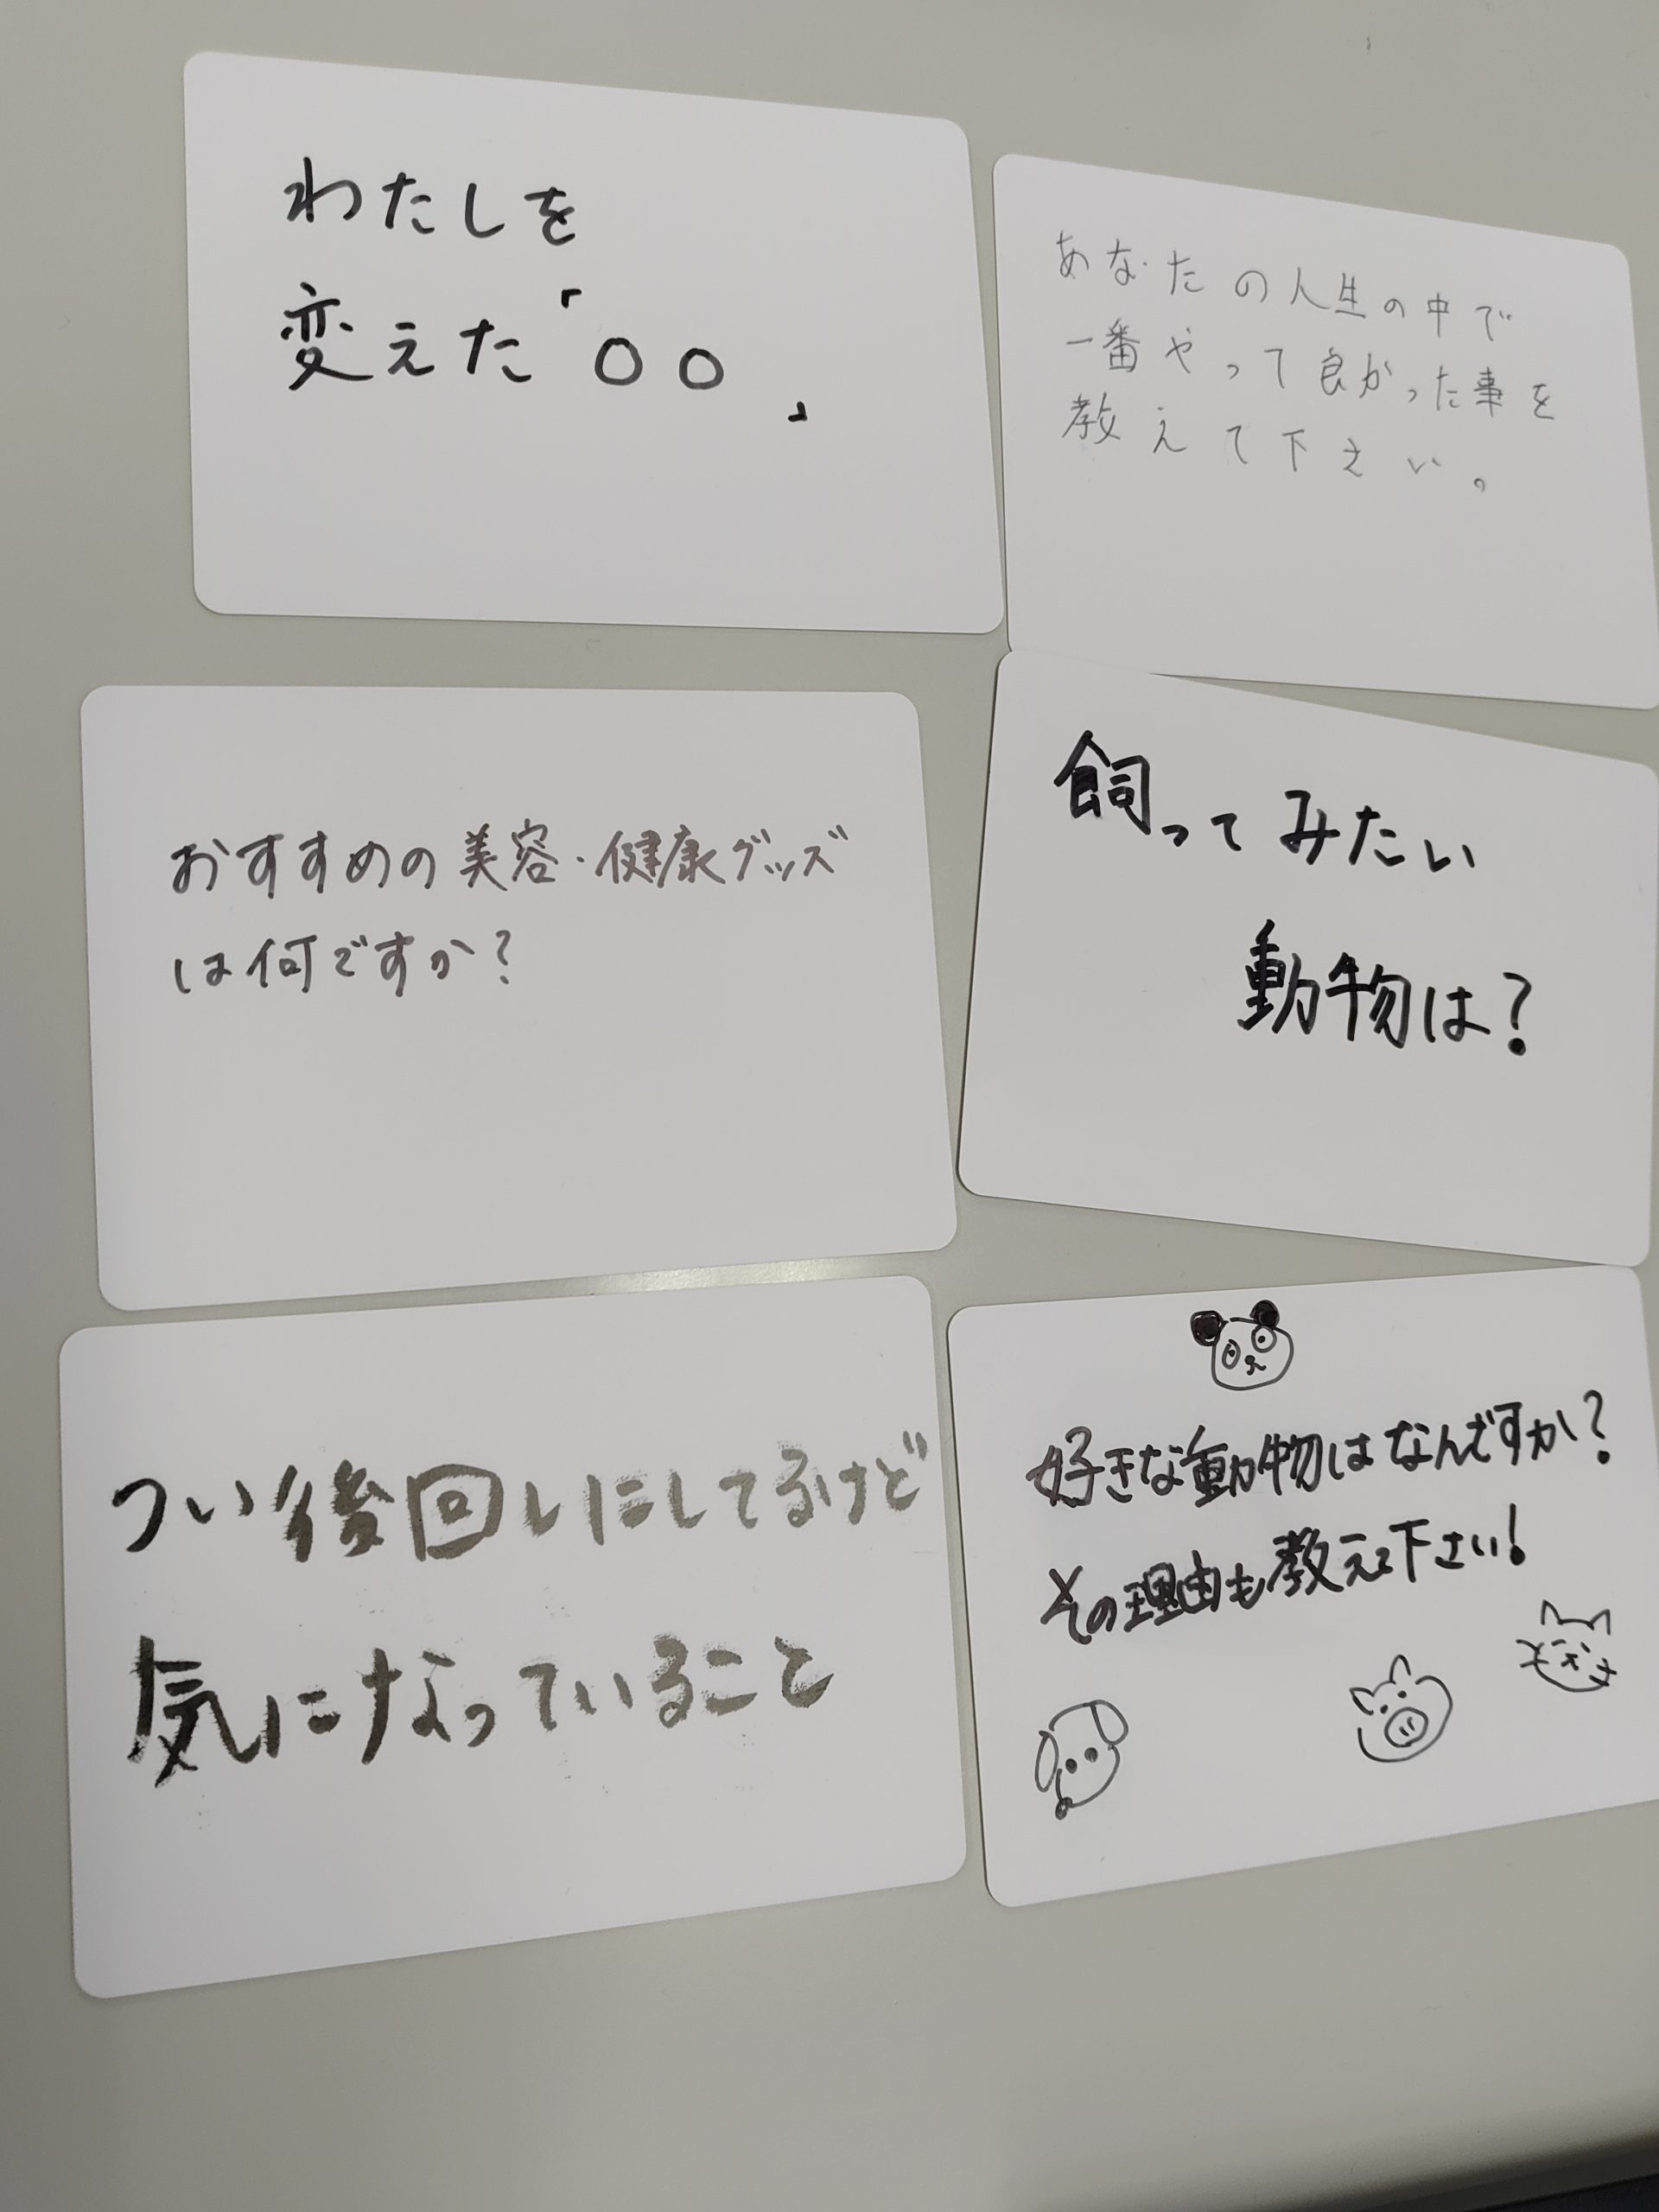 わたしを
変えた「○○」
あなたの人生の中で
一番やって良かった事を
教えて下さい。
おすすめの美容・健康グッズ
は何ですか？
飼ってみたい
動物は？
つい後回しにしてるけど
気になっていること
好きな動物はなんですか？
その理由も教えて下さい！